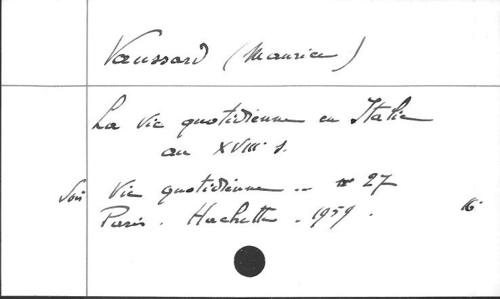 Vaussard (Maurice)
La Vie quotidienne en Italie
au XVIIIe s.
Vie quotidienne .. n° 27
Paris . Hachette . 1959 .
16